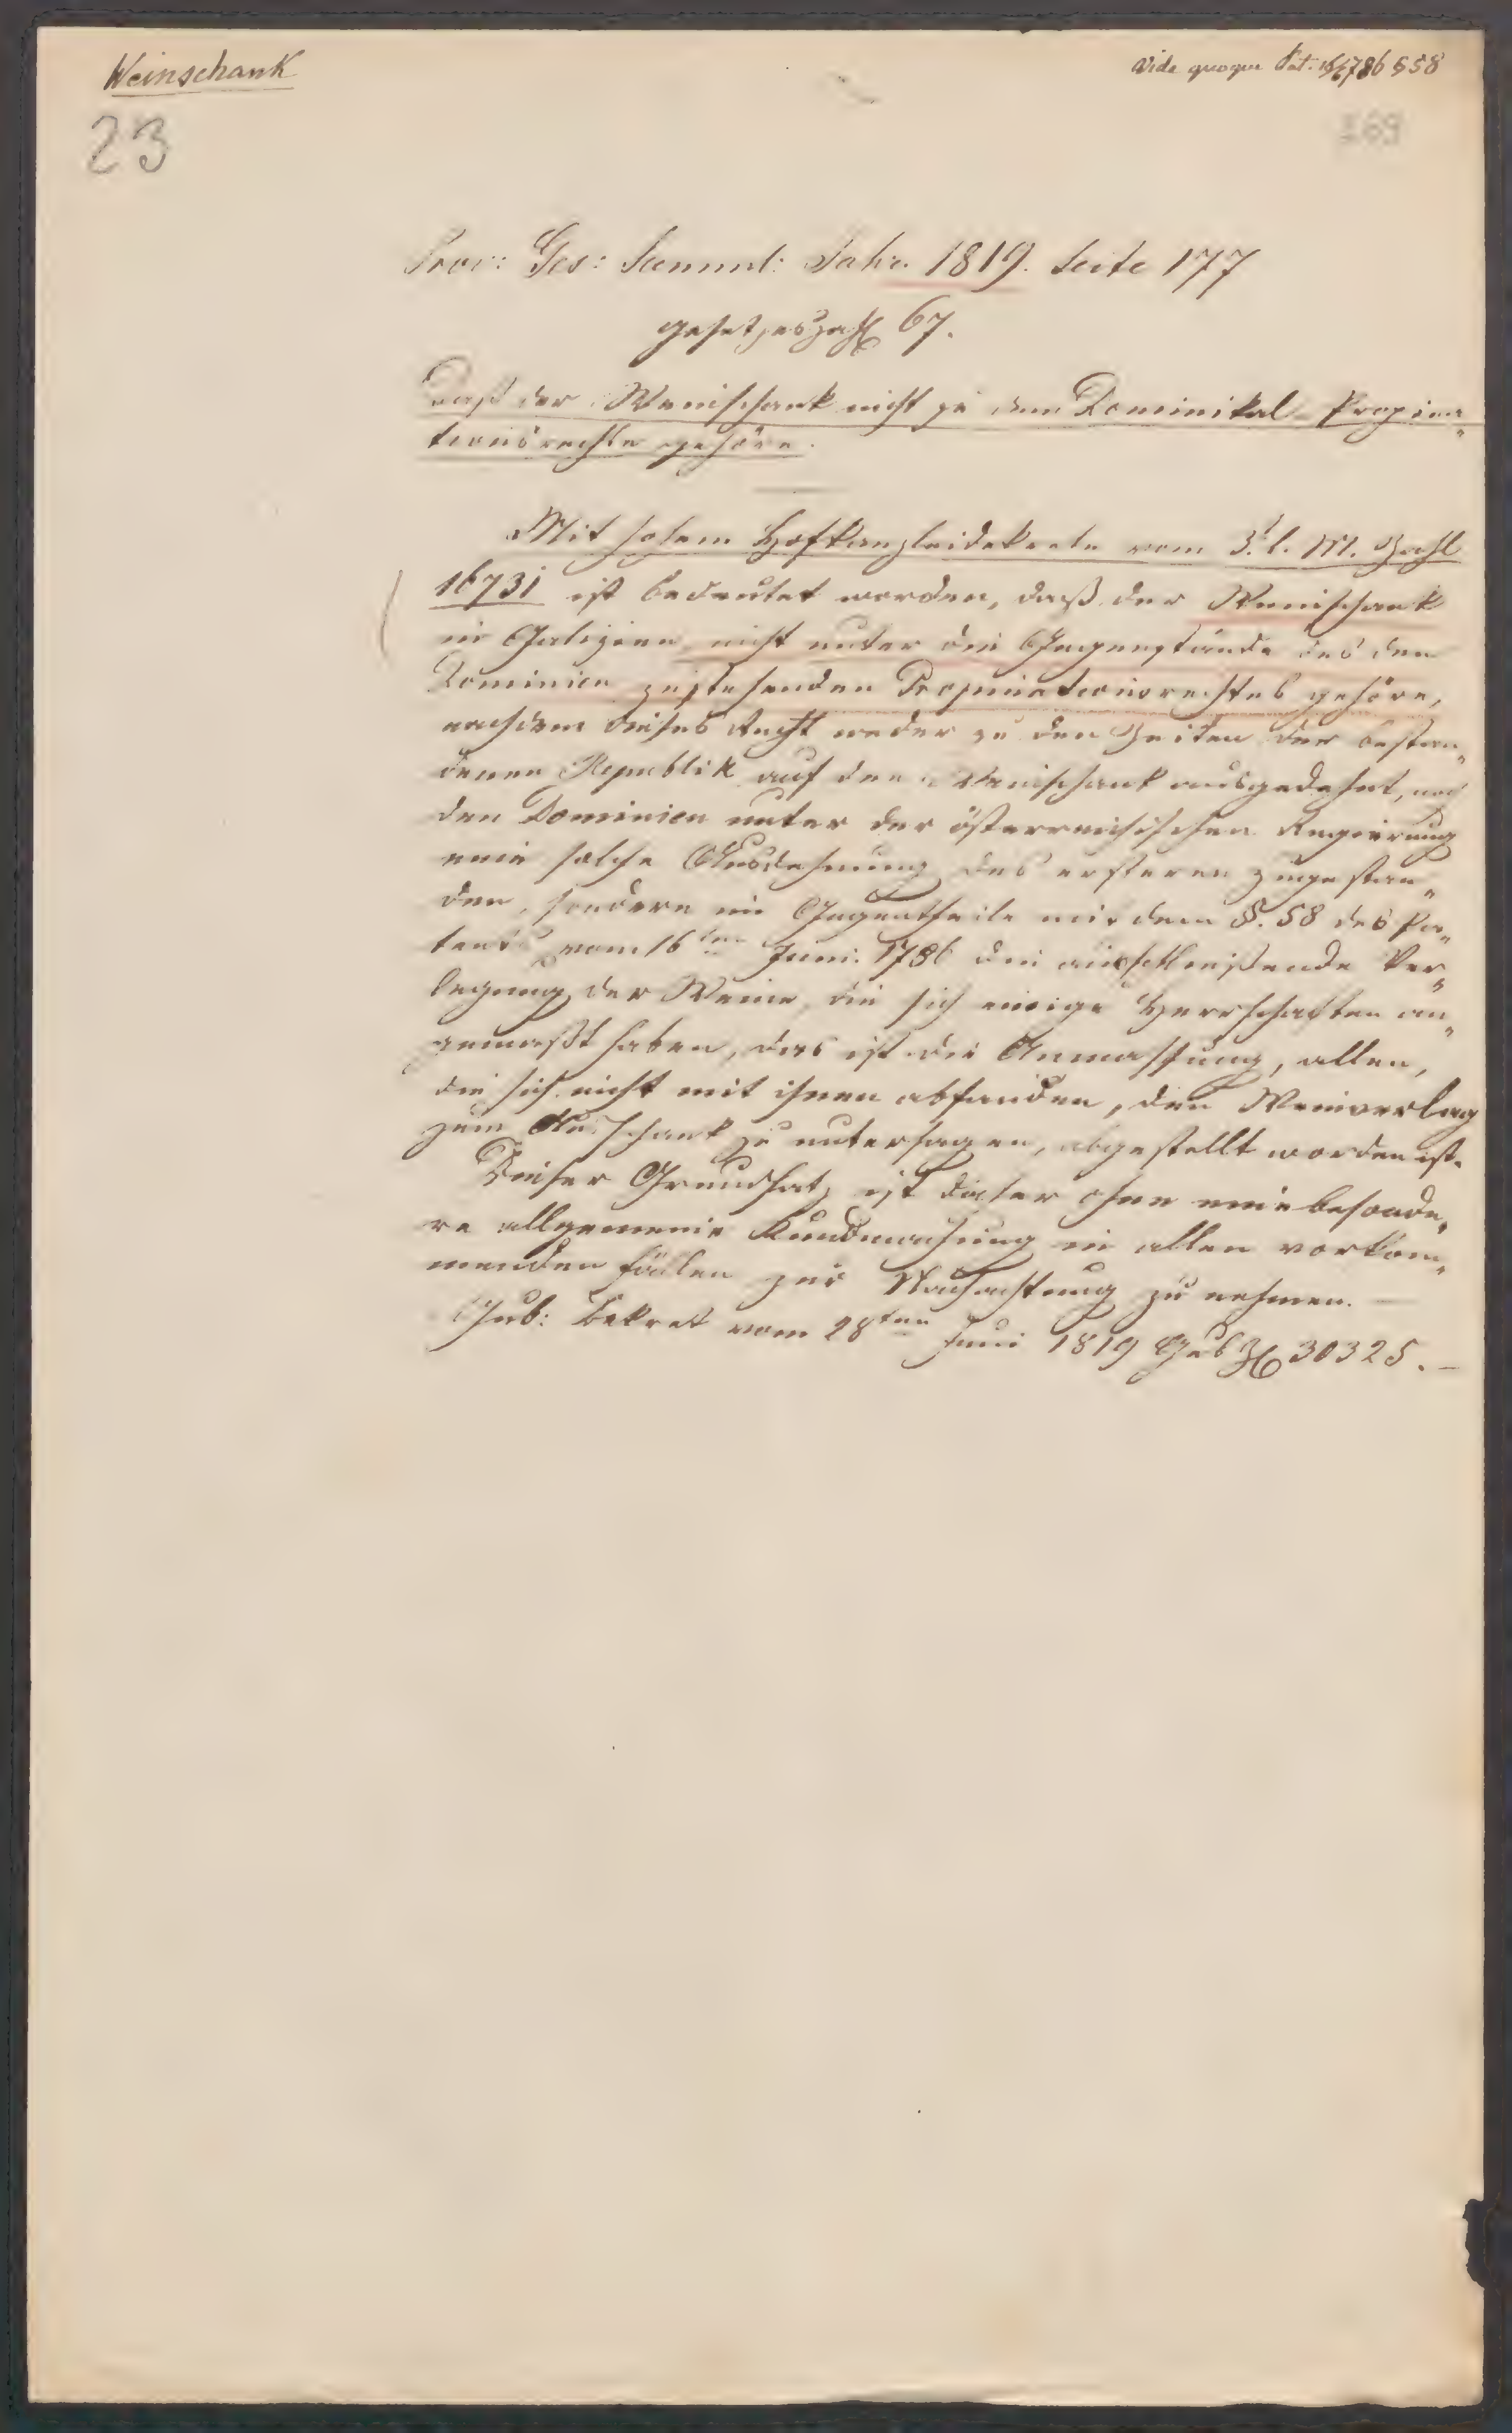 Weinschank
Vide quoque Pat. 16/6 786 § 58
23
169
Prov: Ges: Samml: Jahr. 1819. Seite 177
Gesetzeszahl 67.
Daß der Weinschank nicht zu dem Dominikal-Propina„
tionsrechte gehöre.
Mit hohem Hofkanzleidekrete vom 3. l. M. Zahl
16731 ist bedeutet worden, daß der Weinschank
in Galizien nicht unter die Gegenstände des den
Dominien zustehenden Propinationsrechtes gehöre,
nachdem dieses Recht weder zu den Zeiten der bestan„
denen Republik auf den Weinschank ausgedehnt, noch
den Dominien unter der österreichischen Regierung
eine solche Ausdehnung des ersteren zugestan„
den, sondern im Gegentheile mit dem §. 58 des Pa„
tents vom 16ten Juni 1786 die ausschließende Ver„
legung der Weine, die sich einige Herrschaften an„
gemaßt haben, das ist die Anmassung, allen,
die sich nicht mit ihnen abfanden, den Weinverlag
zum Ausschank zu untersagen, abgestellt worden ist.
Dieser Grundsatz ist daher ohne eine besonde„
re allgemeine Kundmachung in allen vorkom„
menden Fällen zur Nachachtung zu nehmen. —
Gub: Dekret vom 28ten Juni 1819 Gub Zl 30325. —